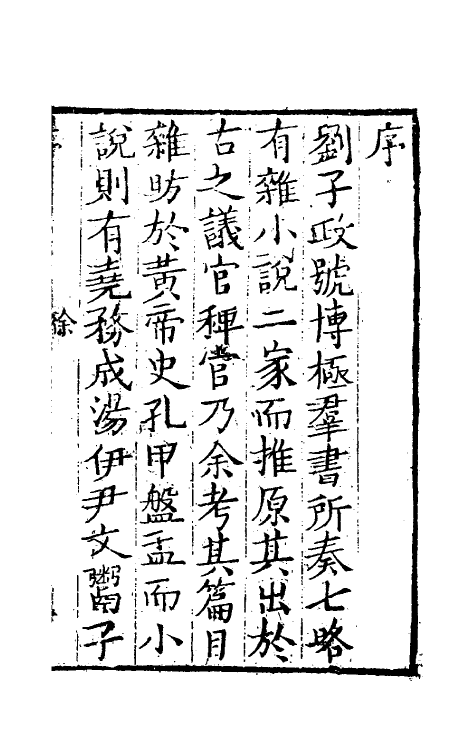 序
劉子政號博極羣書所奏七略
有雜小說二家而推原其出於
古之議官稗官乃余考其篇目
雜昉於黃帝史孔甲盤盂而小
說則有堯務成湯伊尹文鬻子
序 徐